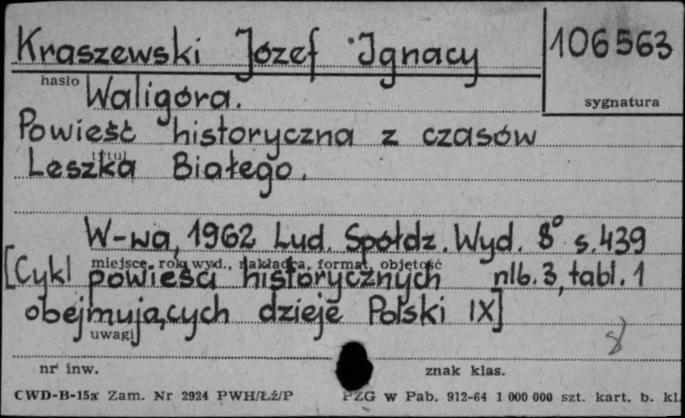 Kraszewski Józef Ignacy
106563
hasło
sygnatura
Waligóra.
Powieść historyczna z czasów
tytuł
Leszka Białego.
W-wa, 1962 Lud. Spółdz. Wyd. 8° s. 439
miejsce, rok wyd., nakładca, format, objętość
[Cykl powieści historycznych nlb. 3, tabl. 1
obejmujących dzieje Polski IX]
uwagi
nr inw.
znak klas.
CWD-B-15a Zam. Nr 2924 PWH/Łź/P PZG w Pab. 912-64 1 000 000 szt. kart. b. kl.